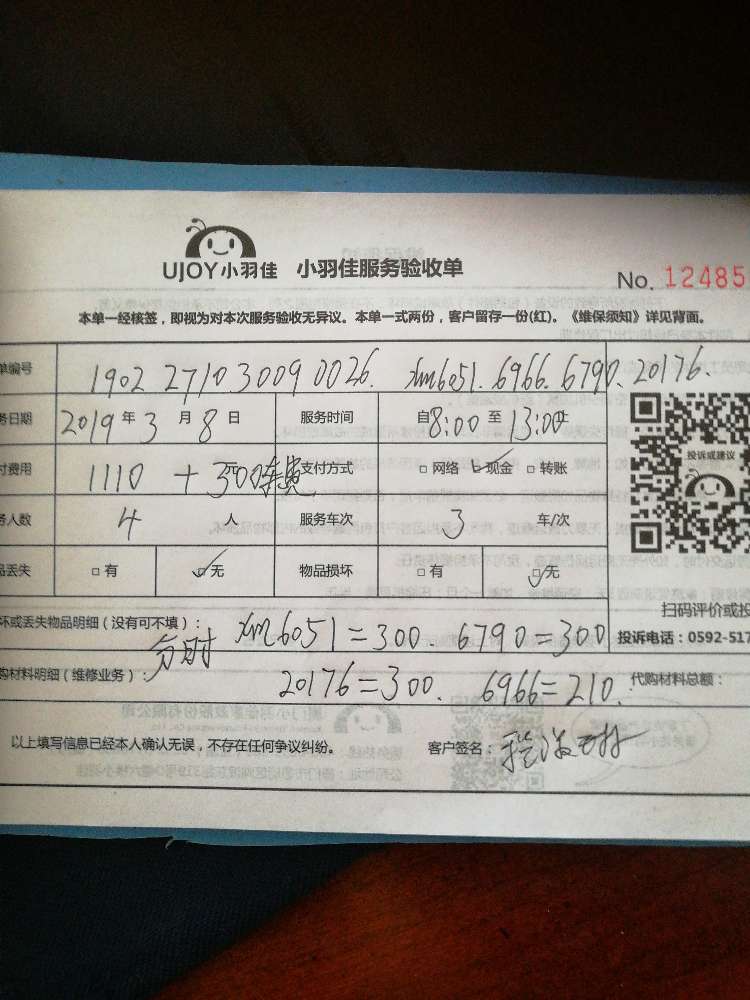 UJOY小羽佳 小羽佳服务验收单
No. 12485
本单一经核签，即视为对本次服务验收无异议。本单一式两份，客户留存一份(红)。《维保须知》详见背面。
单编号 1902 2710 3009 0026. xm6051. 6966. 6790. 20176.
务日期 2019 年 3 月 8 日 服务时间 自8:00 至 13:00止
付费用 1110 + 300车费 支付方式 □ 网络 ☑现金 □ 转账
投诉或建议
务人数 4 人 服务车次 3 车/次
品丢失 □ 有 ☑无 物品损坏 □ 有 ☑无
扫码评价或投
坏或丢失物品明细（没有可不填）： xm6051=300. 6790=300
投诉电话：0592-517
购材料明细（维修业务）： 分时 20176=300. 6966=210. 代购材料总额：
以上填写信息已经本人确认无误，不存在任何争议纠纷。 客户签名：